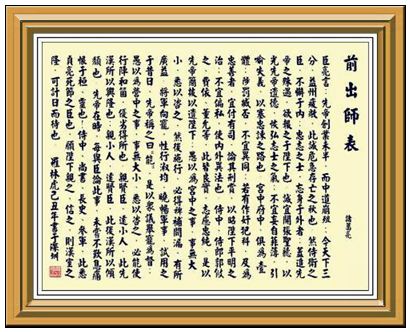 前出師表
諸葛亮
臣亮言：先帝創業未半，而中道崩殂，今天下三
分，益州疲敝，此誠危急存亡之秋也。然侍衛之
臣，不懈于內，忠志之士，忘身于外者，蓋追先
帝之殊遇，欲報之于陛下也。誠宜開張聖聽，以
光先帝遺德，恢弘志士之氣，不宜妄自菲薄，引
喻失義，以塞忠諫之路也。宮中府中，俱為壹
體，陟罰臧否，不宜異同。若有作奸犯科，及為
忠善者，宜付有司，論其刑賞，以昭陛下平明之
治，不宜偏私，使內外異法也。侍中、侍郎郭攸
之、費依、董允等，此皆良實，志慮忠純，是以
先帝簡拔以遺陛下。愚以為宮中之事，事無大
小，悉以咨之，然後施行，必得裨補闕漏，有所
廣益。將軍向寵，性行淑均，曉暢軍事，試用之
于昔日，先帝稱之曰能，是以眾議舉寵為督。
愚以為營中之事，事無大小，悉以咨之，必能使
行陣和苗，優劣得所也。親賢臣，遠小人，此先
漢所以興隆也；親小人，遠賢臣，此後漢所以傾
頹也。先帝在時，每與臣論此事，未嘗不致息痛
恨于桓、靈也。侍中、尚書、長史、參軍，此悉
貞亮死節之臣也，願陛下親之、信之，則漢室之
隆，可計日而待也。 羅林虎己丑年書于深圳